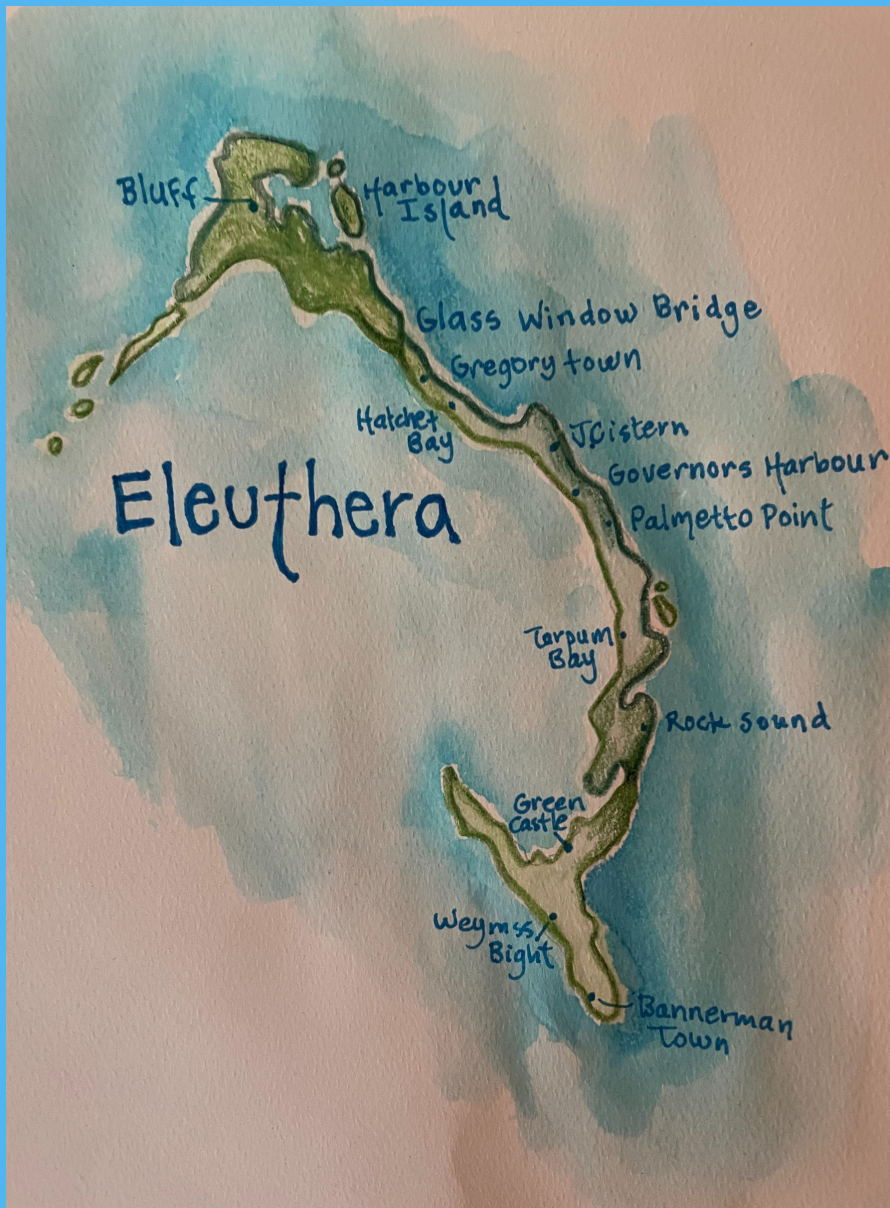 Bluff
Harbour
Island
Glass Window Bridge
Gregory town
Hatchet
Bay
JCistern
Governors Harbour
Eleuthera
Palmetto Point
Tarpum
Bay
Rock Sound
Green
Castle
Weymss
Bight
Bannerman
Town